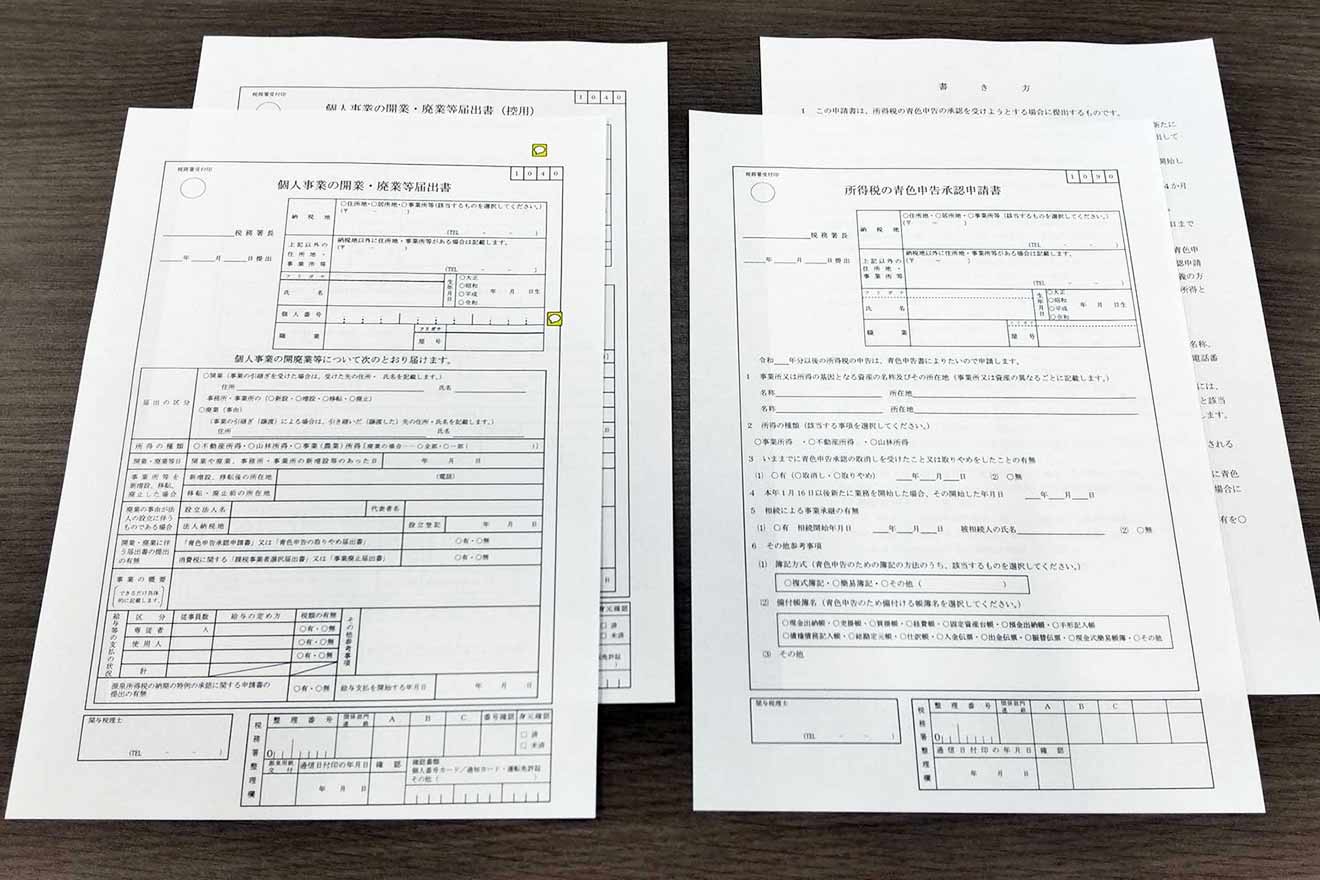 税務署受付印
1 0 4 0
個人事業の開業・廃業等届出書（控用）
税務署受付印
1 0 4 0
個人事業の開業・廃業等届出書
税務署長
年 月 日提出
納税地
○住所地・○居所地・○事業所等（該当するものを選択してください。）
（〒 － ）
（TEL － － ）
上記以外の住所地・事業所等
納税地以外に住所地・事業所等がある場合は記載します。
（〒 － ）
（TEL － － ）
フリガナ
氏名
生年月日
○大正
○昭和
○平成
○令和
年 月 日生
個人番号
職業
フリガナ
屋号
個人事業の開廃業等について次のとおり届けます。
届出の区分
○開業（事業の引継ぎを受けた場合は、受けた先の住所・氏名を記載します。）
住所 氏名
事務所・事業所の（○新設・○増設・○移転・○廃止）
○廃業（事由）
（事業の引継ぎ（譲渡）による場合は、引き継いだ（譲渡した）先の住所・氏名を記載します。）
住所 氏名
所得の種類
○不動産所得・○山林所得・○事業（農業）所得〔廃業の場合……○全部・○一部（ ）〕
開業・廃業等日
開業や廃業、事務所・事業所の新増設等のあった日 年 月 日
事業所等を新増設、移転、廃止した場合
新増設、移転後の所在地 （電話）
移転・廃止前の所在地
廃業の事由が法人の設立に伴うものである場合
設立法人名 代表者名
法人納税地 設立登記 年 月 日
開業・廃業に伴う届出書の提出の有無
「青色申告承認申請書」又は「青色申告の取りやめ届出書」 ○有・○無
消費税に関する「課税事業者選択届出書」又は「事業廃止届出書」 ○有・○無
事業の概要
できるだけ具体的に記載します。
給与等の支払の状況
区分 従事員数 給与の定め方 税額の有無
専従者 人 ○有・○無
使用人 ○有・○無
○有・○無
計
その他参考事項
源泉所得税の納期の特例の承認に関する申請書の提出の有無 ○有・○無 給与支払を開始する年月日 年 月 日
関与税理士
（TEL － － ）
税務署整理欄
整理番号 関係部門連絡 A B C 番号確認 身元確認
0
□ 済
□ 未済
源泉用紙交付 通信日付印の年月日 確認
年 月 日
確認書類
個人番号カード／通知カード・運転免許証
その他（ ）
身元確認
済
未済
運転免許証
書き方
1 この申請書は、所得税の青色申告の承認を受けようとする場合に提出するものです。
税務署受付印
1 0 9 0
所得税の青色申告承認申請書
税務署長
年 月 日提出
納税地
○住所地・○居所地・○事業所等（該当するものを選択してください。）
（〒 － ）
（TEL － － ）
上記以外の住所地・事業所等
納税地以外に住所地・事業所等がある場合は記載します。
（〒 － ）
（TEL － － ）
フリガナ
氏名
生年月日
○大正
○昭和
○平成
○令和
年 月 日生
職業
フリガナ
屋号
令和 年分以後の所得税の申告は、青色申告書によりたいので申請します。
1 事業所又は所得の基因となる資産の名称及びその所在地（事業所又は資産の異なるごとに記載します。）
名称 所在地
名称 所在地
2 所得の種類（該当する事項を選択してください。）
○事業所得 ・○不動産所得 ・○山林所得
3 いままでに青色申告承認の取消しを受けたこと又は取りやめをしたことの有無
(1) ○有（○取消し・○取りやめ） 年 月 日 (2) ○無
4 本年1月16日以後新たに業務を開始した場合、その開始した年月日 年 月 日
5 相続による事業承継の有無
(1) ○有 相続開始年月日 年 月 日 被相続人の氏名 (2) ○無
6 その他参考事項
(1) 簿記方式（青色申告のための簿記の方法のうち、該当するものを選択してください。）
○複式簿記・○簡易簿記・○その他（ ）
(2) 備付帳簿名（青色申告のため備付ける帳簿名を選択してください。）
○現金出納帳・○売掛帳・○買掛帳・○経費帳・○固定資産台帳・○預金出納帳・○手形記入帳
○債権債務記入帳・○総勘定元帳・○仕訳帳・○入金伝票・○出金伝票・○振替伝票・○現金式簡易帳簿・○その他
(3) その他
関与税理士
（TEL － － ）
税務署整理欄
整理番号 関係部門連絡 A B C
0
通信日付印の年月日 確認
年 月 日